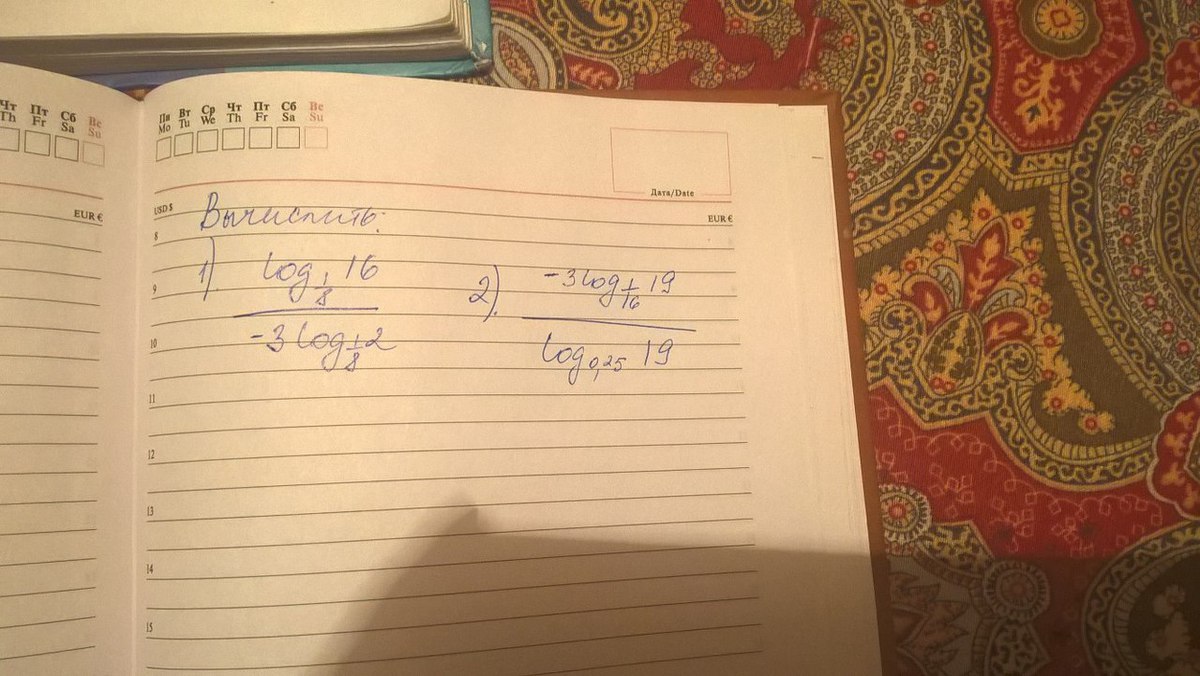 Чт Пт Сб Вс
Th Fr Sa Su
EUR €
Пн Вт Ср Чт Пт Сб Вс
Mo Tu We Th Fr Sa Su
Дата/Date
USD $
EUR €
Вычислить:
8
1) log_{1/8} 16 / -3 log_{1/8} 2
2) -3 log_{1/16} 19 / log_{0,25} 19
9
10
11
12
13
14
15